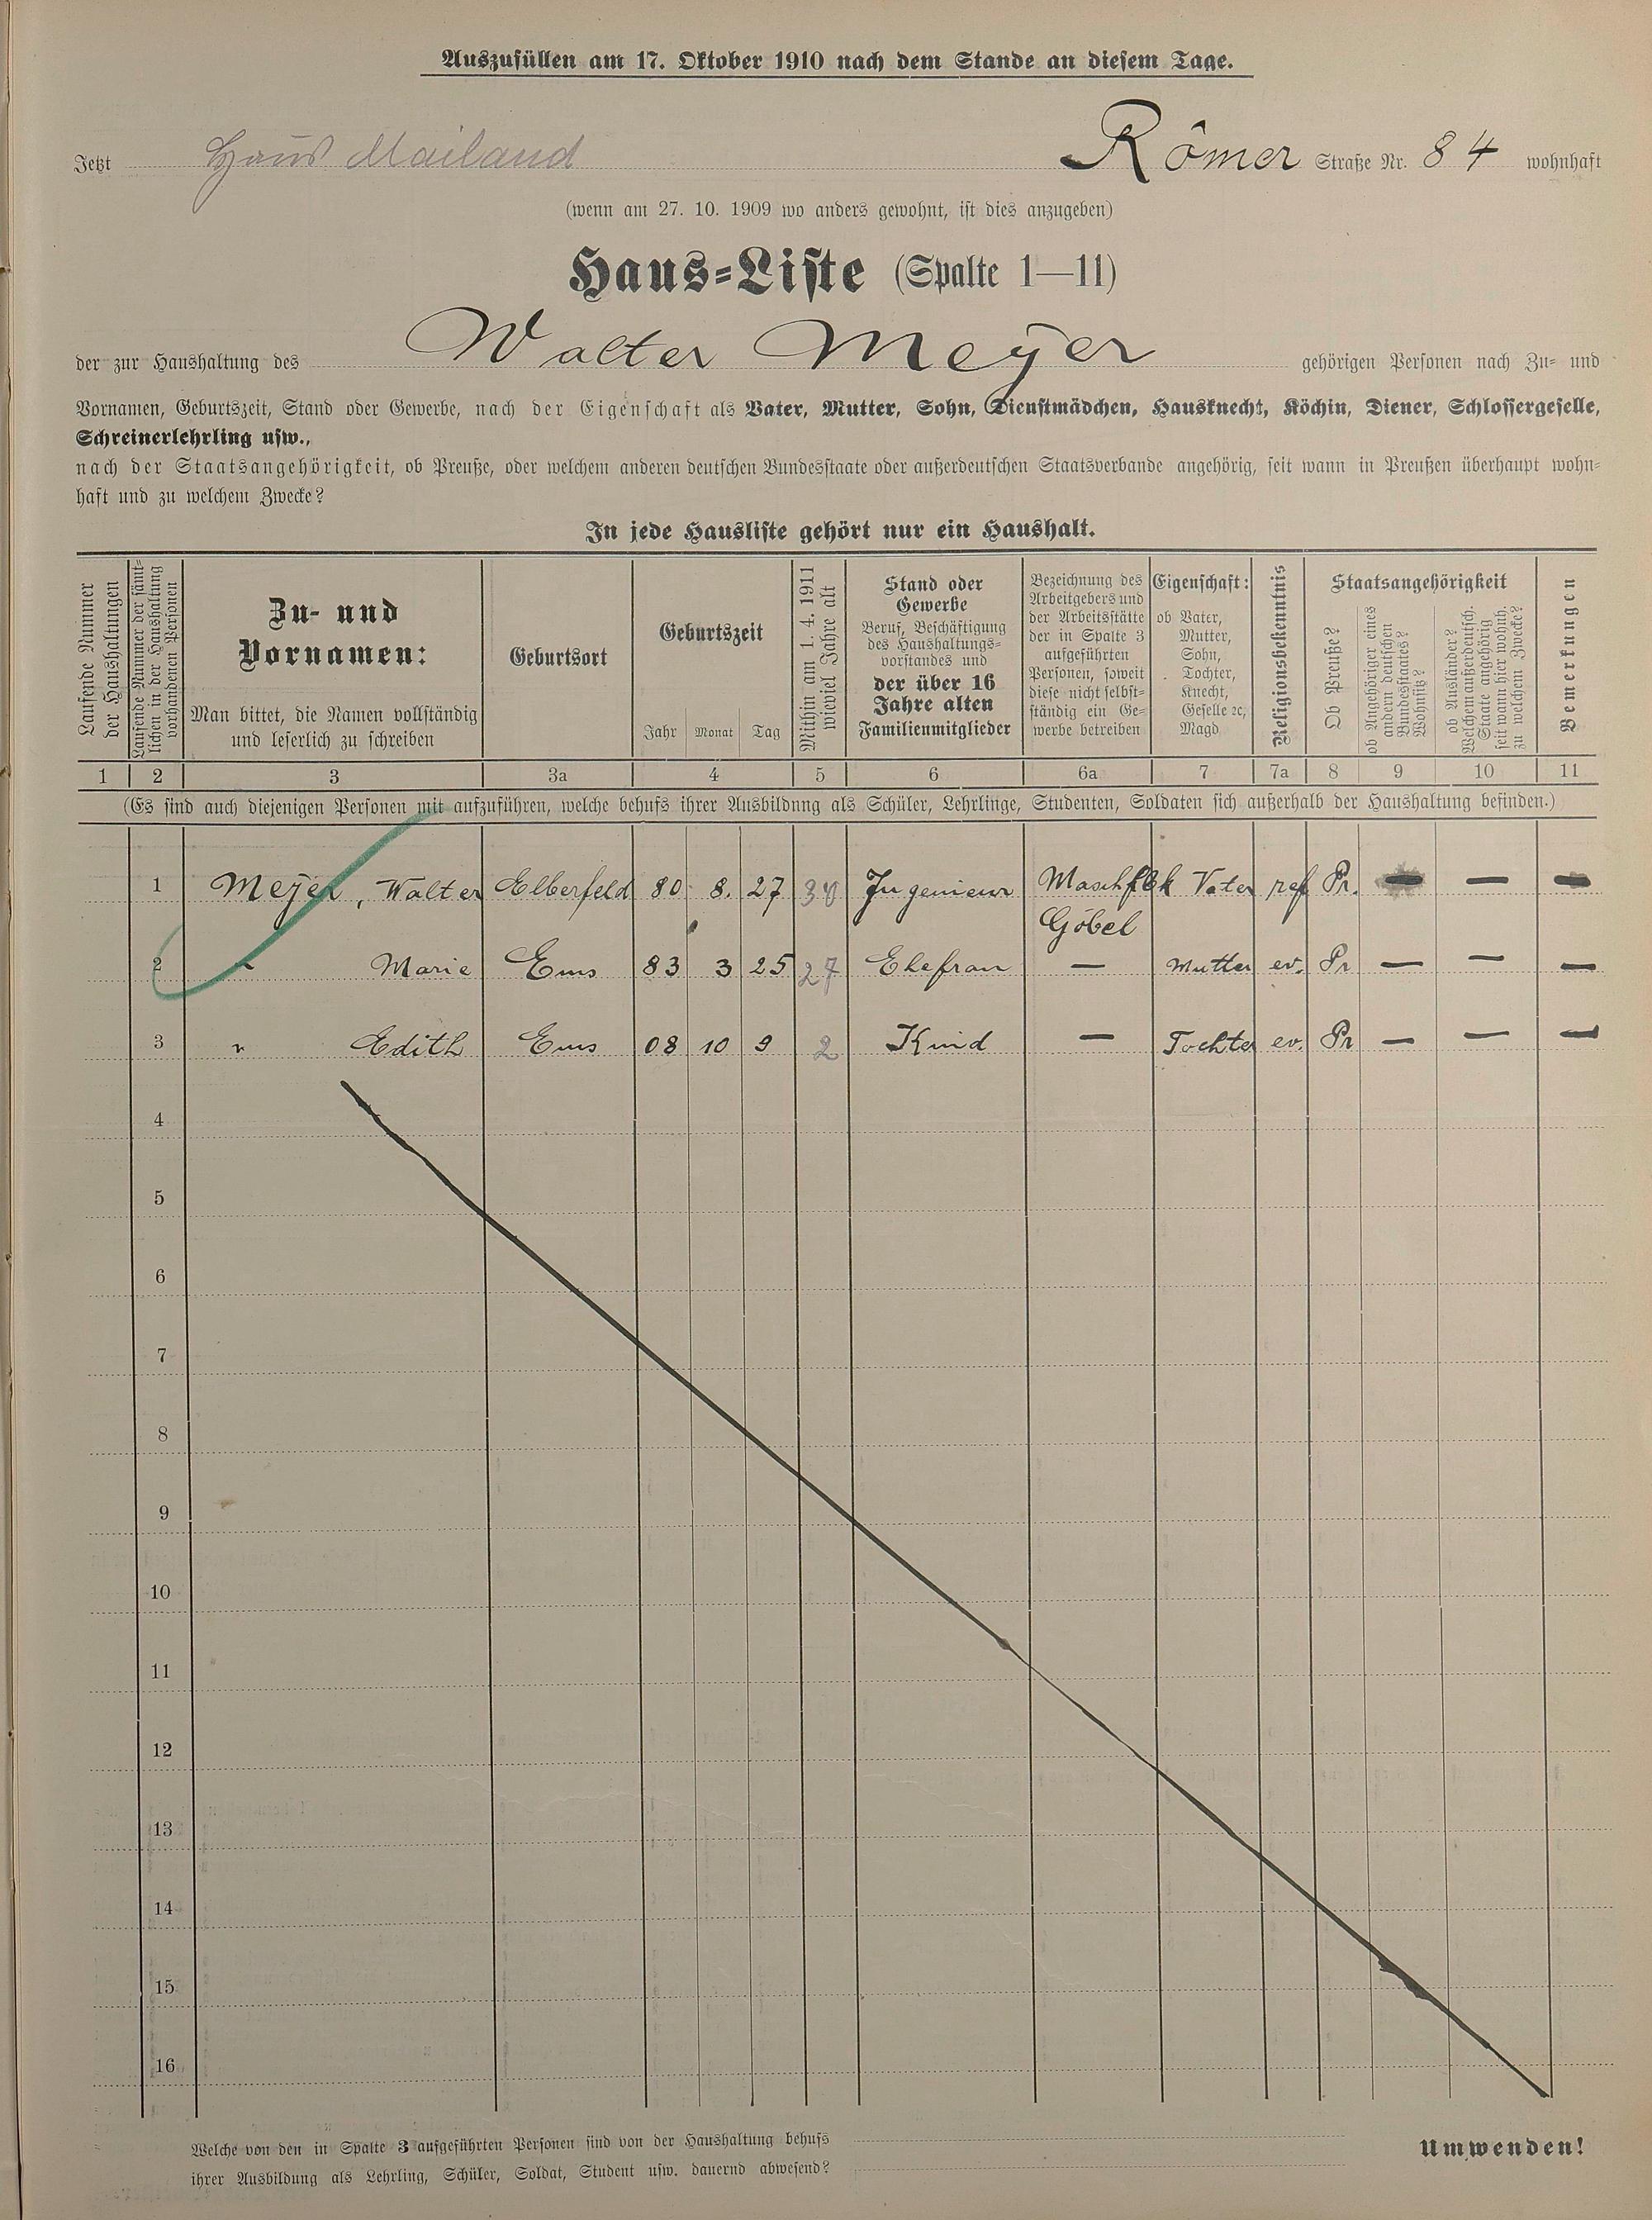 Auszufüllen am 17. Oktober 1910 nach dem Stande an diesem Tage.
Jetzt Haus Mailand Römer Straße Nr. 84 wohnhaft
(wenn am 27. 10. 1909 wo anders gewohnt, ist dies anzugeben)
Haus-Liste (Spalte 1—11)
der zur Haushaltung des Walter Meyer gehörigen Personen nach Zu- und
Vornamen, Geburtszeit, Stand oder Gewerbe, nach der Eigenschaft als Vater, Mutter, Sohn, Dienstmädchen, Hausknecht, Köchin, Diener, Schlossergeselle,
Schreinerlehrling usw.,
nach der Staatsangehörigkeit, ob Preuße, oder welchem anderen deutschen Bundesstaate oder außerdeutschen Staatsverbande angehörig, seit wann in Preußen überhaupt wohn-
haft und zu welchem Zwecke?
In jede Hausliste gehört nur ein Haushalt.
Laufende Nummer
der Haushaltungen
Laufende Nummer der sämt-
lichen in der Haushaltung
vorhandenen Personen
Zu- und
Vornamen:
Man bittet, die Namen vollständig
und leserlich zu schreiben
Geburtsort
Geburtszeit
Jahr Monat Tag
Mithin am 1. 4. 1911
wieviel Jahre alt
Stand oder
Gewerbe
Beruf, Beschäftigung
des Haushaltungs-
vorstandes und
der über 16
Jahre alten
Familienmitglieder
Bezeichnung des
Arbeitgebers und
der Arbeitsstätte
der in Spalte 3
aufgeführten
Personen, soweit
diese nicht selbst-
ständig ein Ge-
werbe betreiben
Eigenschaft:
ob Vater,
Mutter,
Sohn,
Tochter,
Knecht,
Geselle ꝛc,
Magd
Religionsbekenntnis
Staatsangehörigkeit
Ob Preuße?
ob Angehöriger eines
andern deutschen
Bundesstaates?
Wohnsitz?
ob Ausländer?
Welchem außerdeutsch.
Staate angehörig
seit wann hier wohnh.
zu welchem Zwecke?
Bemerkungen
1 2 3 3a 4 5 6 6a 7 7a 8 9 10 11
(Es sind auch diejenigen Personen mit aufzuführen, welche behufs ihrer Ausbildung als Schüler, Lehrlinge, Studenten, Soldaten sich außerhalb der Haushaltung befinden.)
1 Meyer, Walter Elberfeld 80 8. 27 30 Ingenieur Maschfbk Vater ref Pr. — — —
Göbel
2 " Marie Ems 83 3 25 27 Ehefrau — Mutter ev. Pr — — —
3 " Edith Ems 08 10 9 2 Kind — Tochter ev. Pr — — —
4
5
6
7
8
9
10
11
12
13
14
15
16
Welche von den in Spalte 3 aufgeführten Personen sind von der Haushaltung behufs
ihrer Ausbildung als Lehrling, Schüler, Soldat, Student usw. dauernd abwesend?
Umwenden!